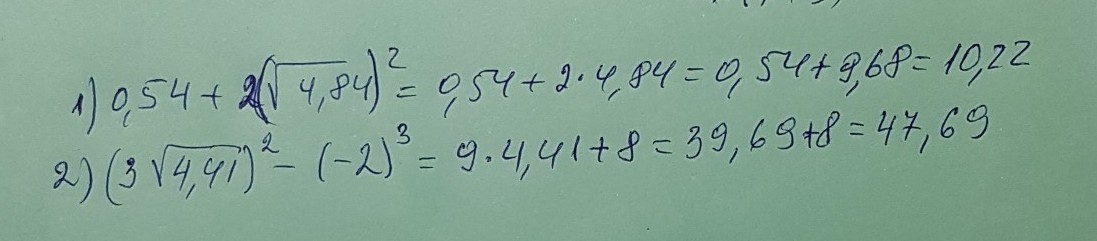 1) 0,54 + 2(√4,84)² = 0,54 + 2·4,84 = 0,54 + 9,68 = 10,22
2) (3√4,41)² - (-2)³ = 9·4,41 + 8 = 39,69 + 8 = 47,69